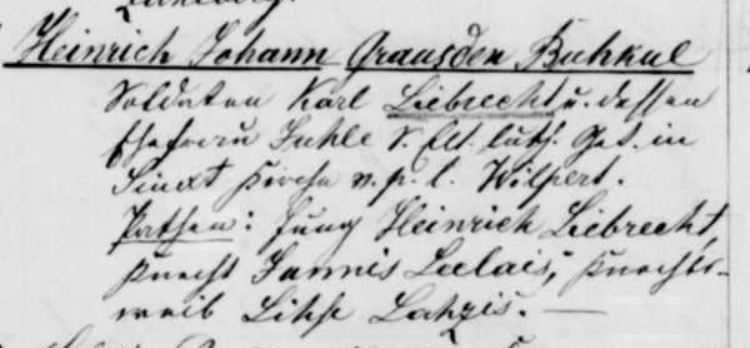 Heinrich Johann Grausden Buhkul
Soldaten Karl Liebrecht u. dessen
Ehefrau Juhle S. Elt. luth. Get. in
Siuxt Kirche v. p. l. Wilpert.
Pathen: Jung Heinrich Liebrecht,
Knecht Jannis Leelais, Knechts-
weib Lihse Lahzis. —